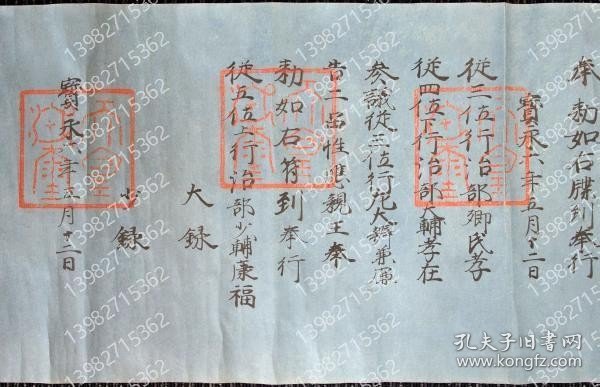 奉勅如右牒到奉行
寳永六年五月十二日
從三位行治部卿氏孝
從四位下行治部大輔孝在
参議從三位行左大辨兼廉
告二品性應親王奉
勅如右符到奉行
從五位上行治部少輔康福
大録
少録
寳永六年五月十二日
天皇御璽
天皇御璽
天皇御璽
13982715362
孔夫子旧书网
www.kongfz.com